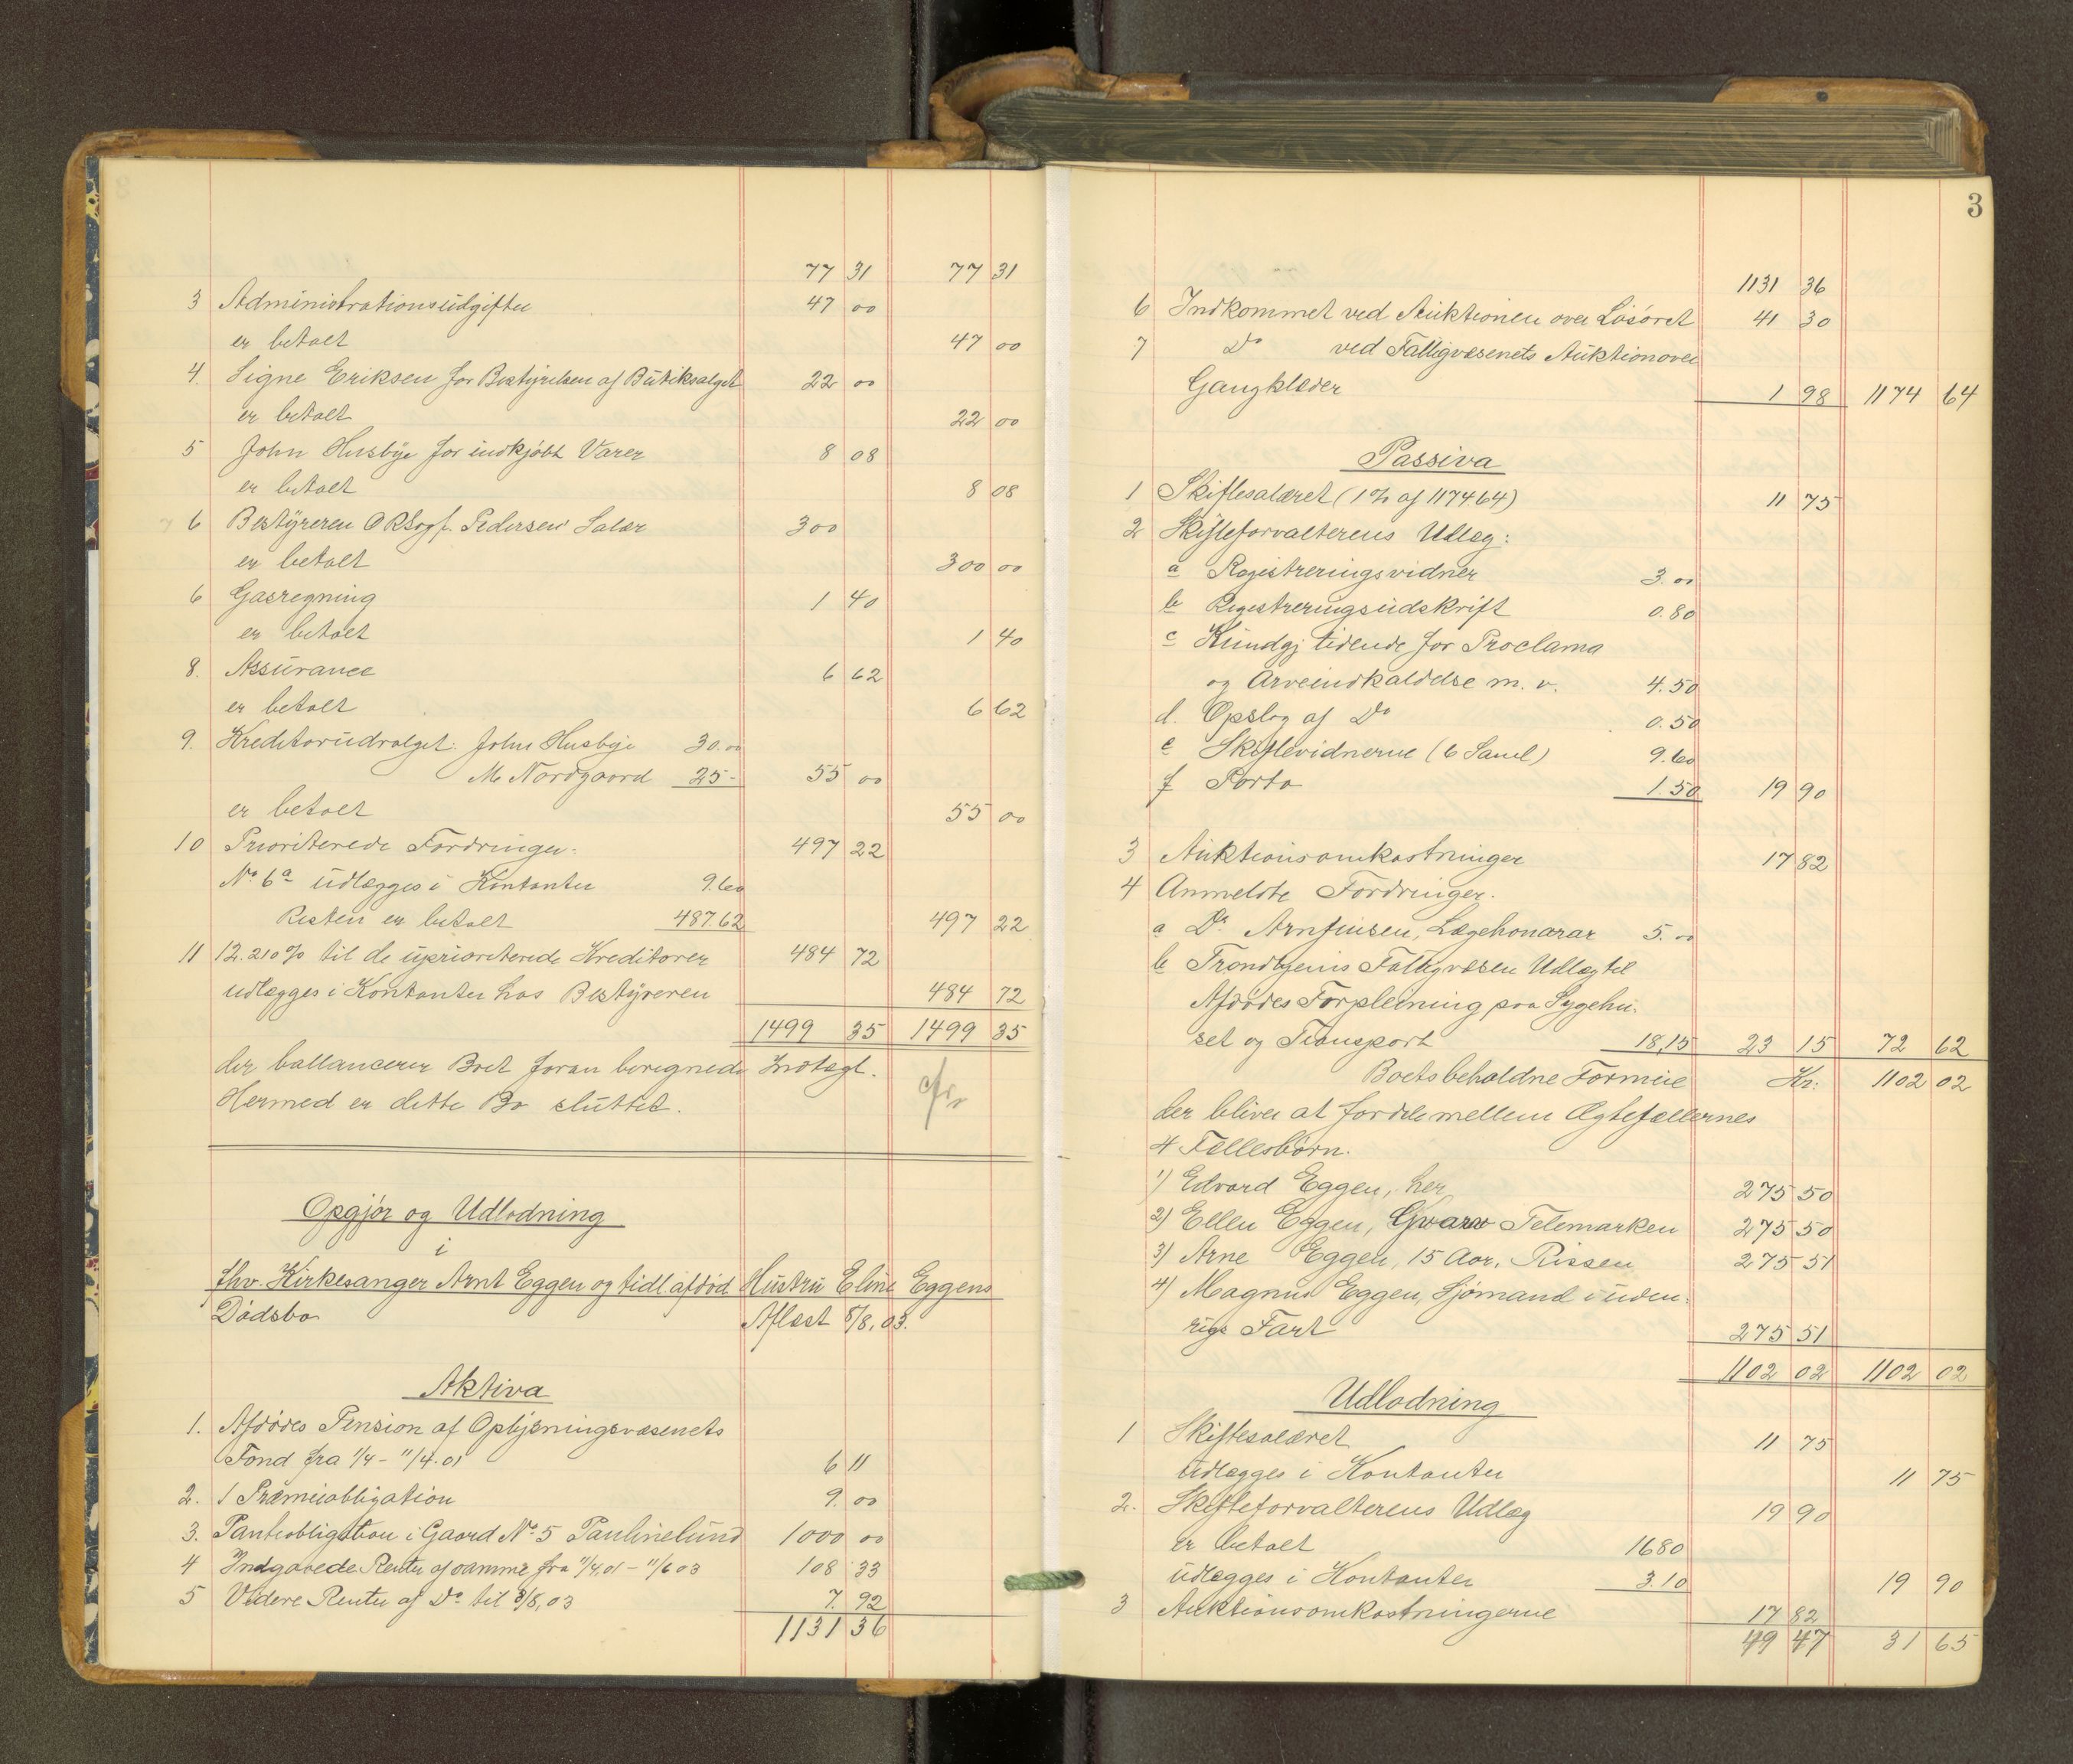 77 31 77 31
3 Administrationsudgifter 47 00
er betalt 47 00
4. Signe Eriksen for Bestyrelsen af Butiksalget 22 00
er betalt 22 00
5 John Husbye for indkjøbt Varer 8 08
er betalt 8 08
6 Bestyreren ORSagf. Pedersens Salær 300
er betalt 300 00
6 Gasregning 1 40
er betalt 1 40
8. Assurance 6 62
er betalt 6 62
9. Kreditorudvalget: John Husbye 30.00
M Nordgaard 25- 55 00
er betalt 55 00
10 Prioriterede Fordringer: 497 22
No 6a udlægges i Kontanter 9.60
Resten er betalt 487.62 497 22
11 12.210% til de uprioriterede Kreditorer 484 72
udlægges i Kontanter hos Bestyreren 484 72
1499 35 1499 35
der ballancerer Boet foran beregnede Indtægt.
Hermed er dette Bo sluttet.
Opgjør og Udlodning
i
fhv. Kirkesanger Arnt Eggen og tidl. afdød Hustru Eline Eggens
Dødsbo Aflæst 8/8.03.
Aktiva
1. Afdødes Pension af Oplysningsvæsenets
Fond fra 1/4 - 11/4.01 6 11
2. 1 Præmieobligation 9. 00
3. Panteobligation i Gaard No. 5 Paulinelund 1000 00
4 Indgaaede Renter af samme fra 11/4.01 - 11/6 03 108 33
5 Videre Renter af Do til 8/8.03 7. 92
1131 36
3
1131 36
6 Indkommet ved Auktionen over Løsøret 41 30
7 Do ved Fattigvæsenets Auktion over
Gangklæder 1 98 1174 64
Passiva
1 Skiftesalæret (1% af 1174 64) 11 75
2 Skifteforvalterens Udlæg:
a Registreringsvidner 3.00
b Registreringsudskrift 0.80
c Kundgj tidende for Proclama
og Arveindkaldelse m. v. 4.50
d. Opslag af Do 0.50
e Skiftevidnerne (6 Saml) 9.60
f Porto 1.50 19 90
3 Auktionsomkostninger 17 82
4 Anmeldte Fordringer.
a Dr. Arnfinsen, Lægehonorar 5.00
b Trondhjems Fattigvæsen Udlæg til
Afdødes Forpleining paa Sygehu-
set og Transport 18,15 23 15 72 62
Boets beholdne Formue Kr: 1102 02
der bliver at fordele mellem Ægtefællernes
4 Fællesbørn.
1) Edvard Eggen, her 275 50
2) Ellen Eggen, Gvarv Telemarken 275 50
3) Arne Eggen, 15 Aar, Rissen 275 51
4) Magnus Eggen, Sjømand i uden-
rigs Fart 275 51
1102 02 1102 02
Udlodning
1 Skiftesalæret 11 75
udlægges i Kontanter 11 75
2. Skifteforvalterens Udlæg 19 90
er betalt 16 80
udlægges i Kontanter 3.10 19 90
3 Auktionsomkostningerne 17 82
49 47 31 65